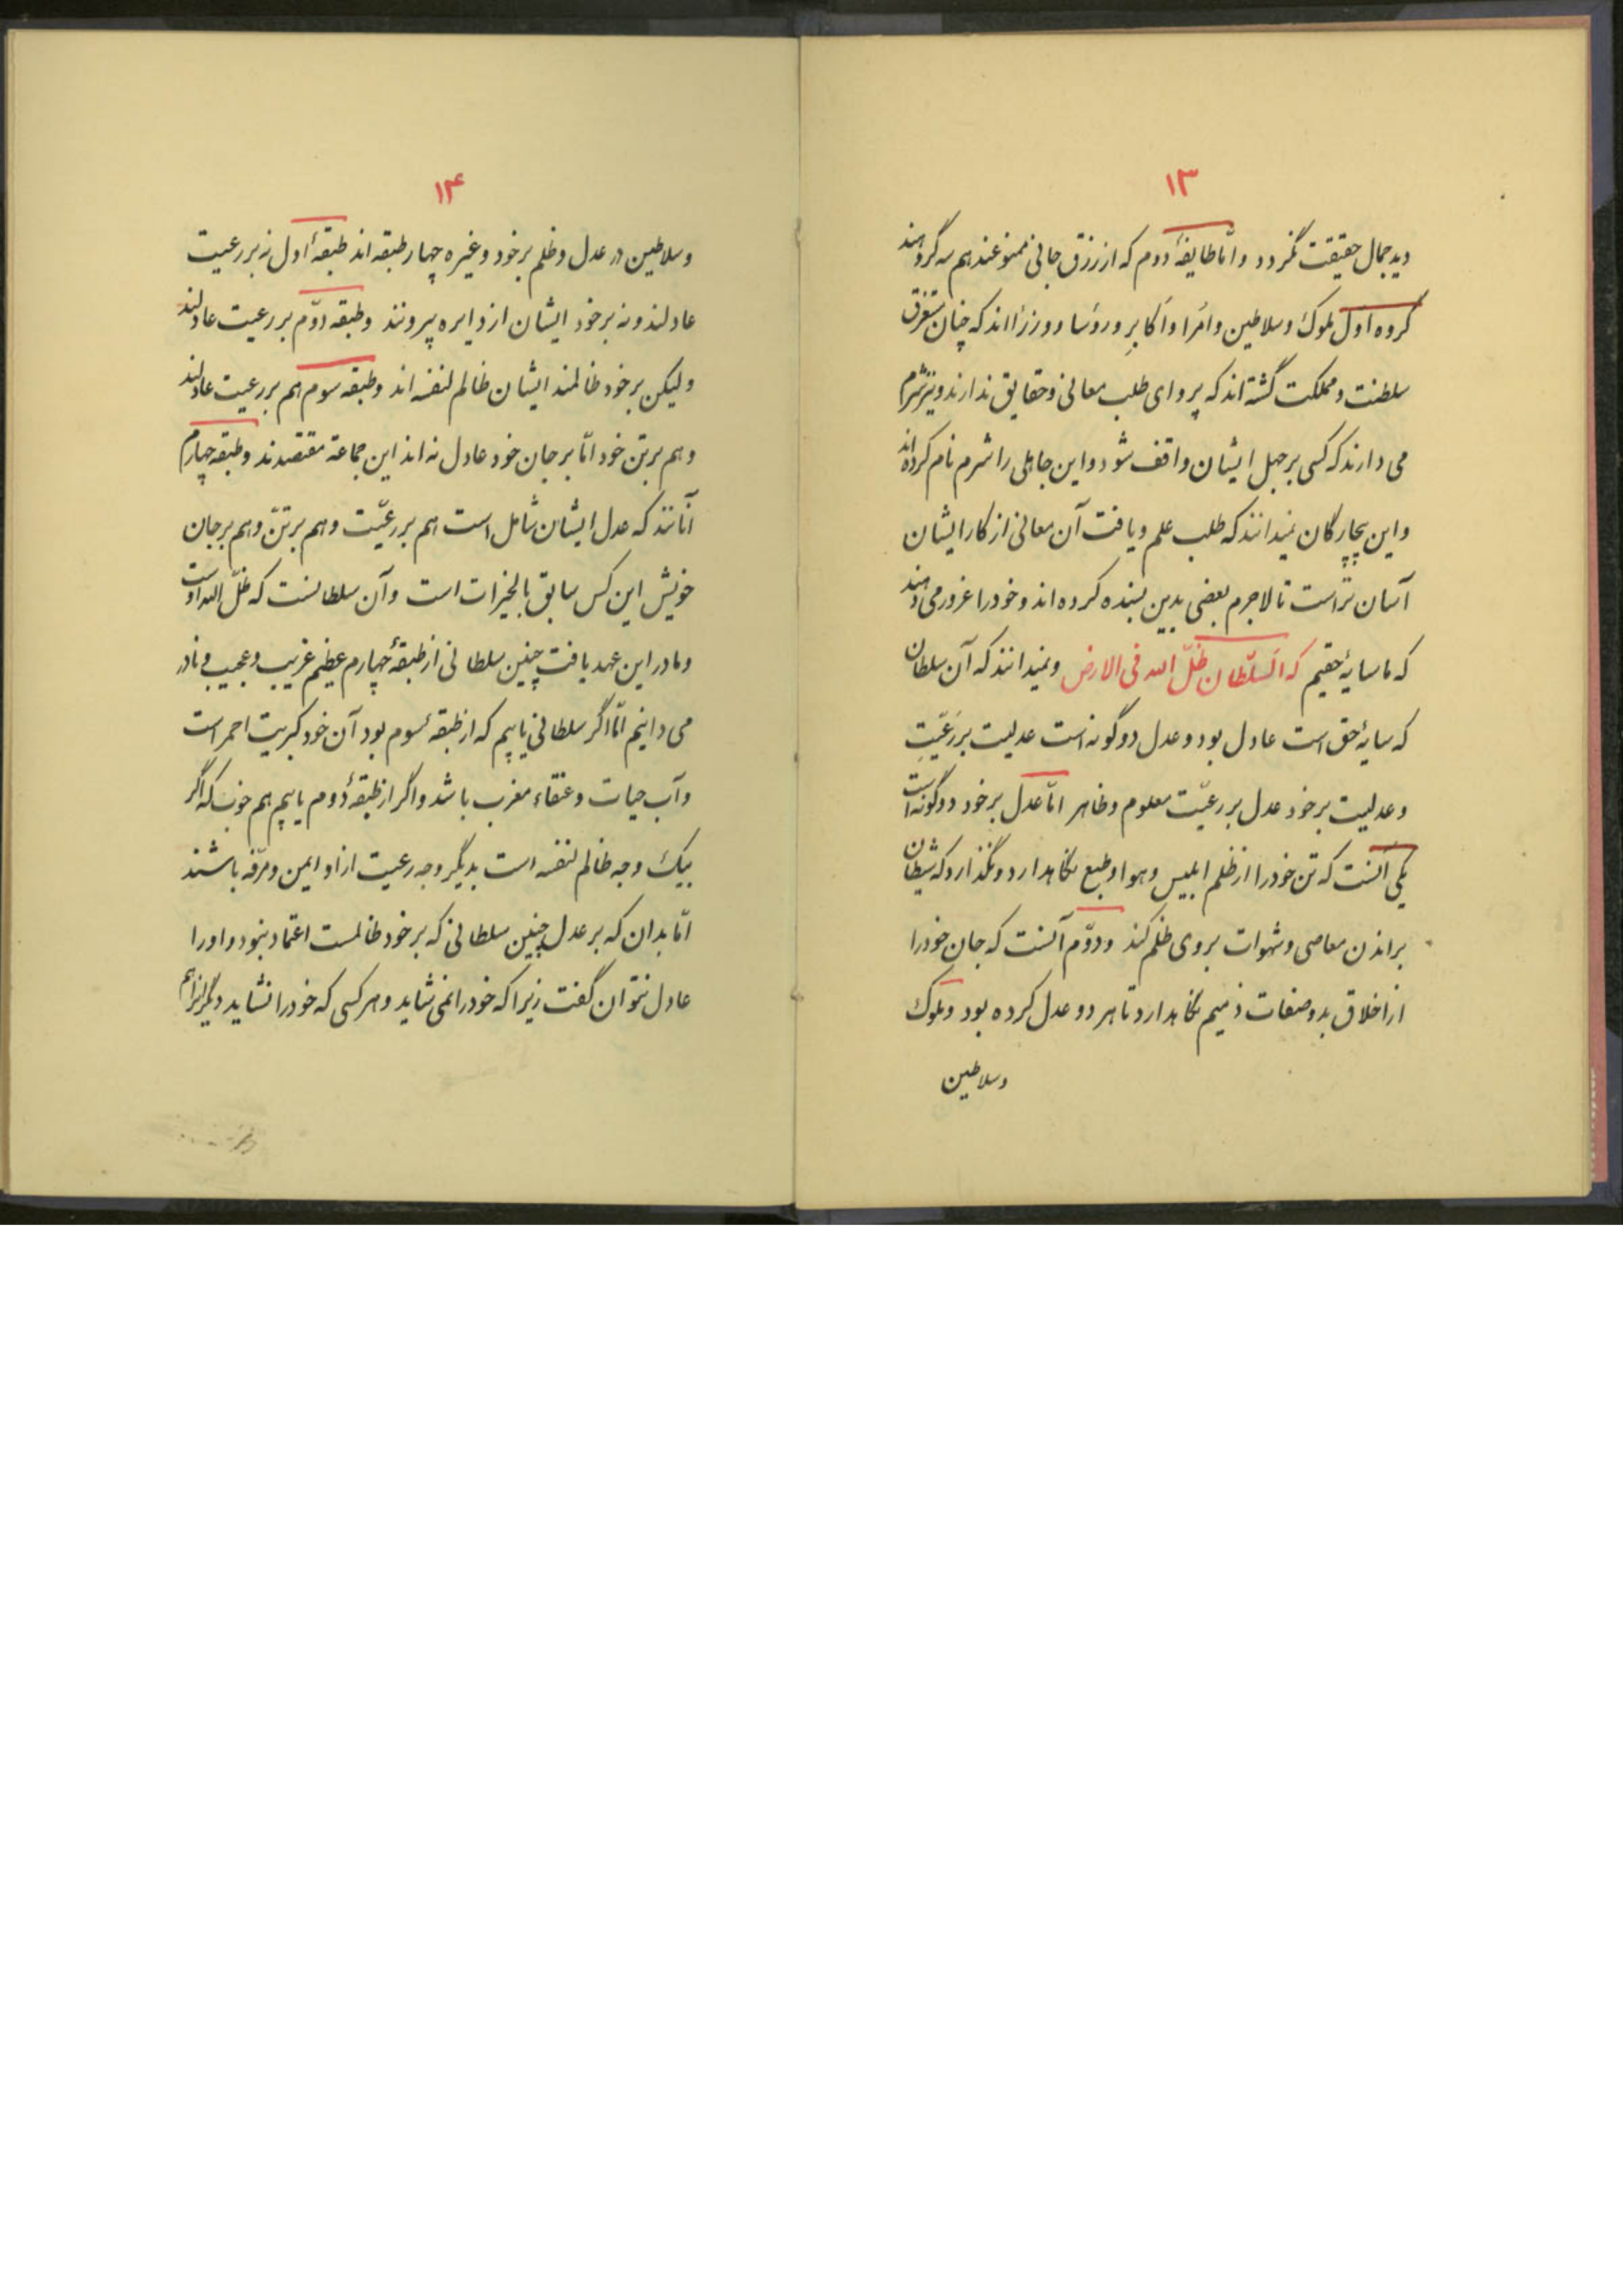 ۱۳
دید جمال حقیقت نگردد و امّا طایفهٔ دوم که از رزق جانی ممنوعند هم سه گروهند
گروه اول ملوک و سلاطین و امَرا و اَکابِر و رؤسا و وزرُا اند که چنان مستغرق
سلطنت و مملکت گشته اند که پروای طلب معانی و حقایق ندارند و نیز شرم
می دارند که کسی بر جهل ایشان واقف شود و این جاهلی را شرم نام کرده اند
و این بیچارگان نمیدانند که طلب علم و یافت آن معانی از کار ایشان
آسان تر است تا لاجرم بعضی بدین بسنده کرده اند و خود را غرور می دهند
که ما سایهٔ حقیم که اَلسّلطان ظلّ الله فی الارض و نمیدانند که آن سلطان
که سایهٔ حق است عادل بود و عدل دو گونه است عدلیست بر رَعّیتِ
و عدلیست بر خود عدل بر رعیّت معلوم و ظاهر امّا عدل بر خود دو گونه است
یکی آنست که تن خود را از ظلم ابلیس و هوا و طبع نگاهدارد و نگذارد که شیطان
براندن معاصی و شهوات بر وی ظلم کند و دوّم آنست که جان خود را
از اخلاق بد و صفات ذمیم نگاهدارد تا هر دو عدل کرده بود و ملوک
وسلاطین
۱۴
و سلاطین در عدل و ظلم بر خود و غیره چهار طبقه اند طبقهٔ اول نه بر رعیت
عادلند و نه بر خود ایشان از دایره بیرونند و طبقه دوّم بر رعیت عادلند
ولیکن بر خود ظالمند ایشان ظالم لنفسه اند و طبقه سوم هم بر رعیت عادلند
و هم بر تن خود امّا بر جان خود عادل نه اند این جماعة مقتصدند و طبقه چهارم
آنانند که عدل ایشان شامل است هم بر رعیّت و هم بر تنّ و هم بر جان
خویش این کس سابق بالخیرات است و آن سلطانست که ظلّ الله اوست
و ما در این عهد یافت چنین سلطانی از طبقهٔ چهارم عظیم غریب و عجیب و نادر
می دانیم امّا اگر سلطانی یابیم که از طبقهٔ سوم بود آن خود کبریت احمر است
و آب حیات و عنقاء مغرب باشد و اگر از طبقهٔ دوم یابیم هم خوب که اگر
بیک وجه ظالم لنفسه است بدیگر وجه رعیت از او ایمن و مرّفه باشند
امّا بدان که بر عدل چنین سلطانی که بر خود ظالمست اعتماد نبود و او را
عادل نتوان گفت زیرا که خود را نمی شاید و هر کسی که خود را نشاید دیگرانرا هم